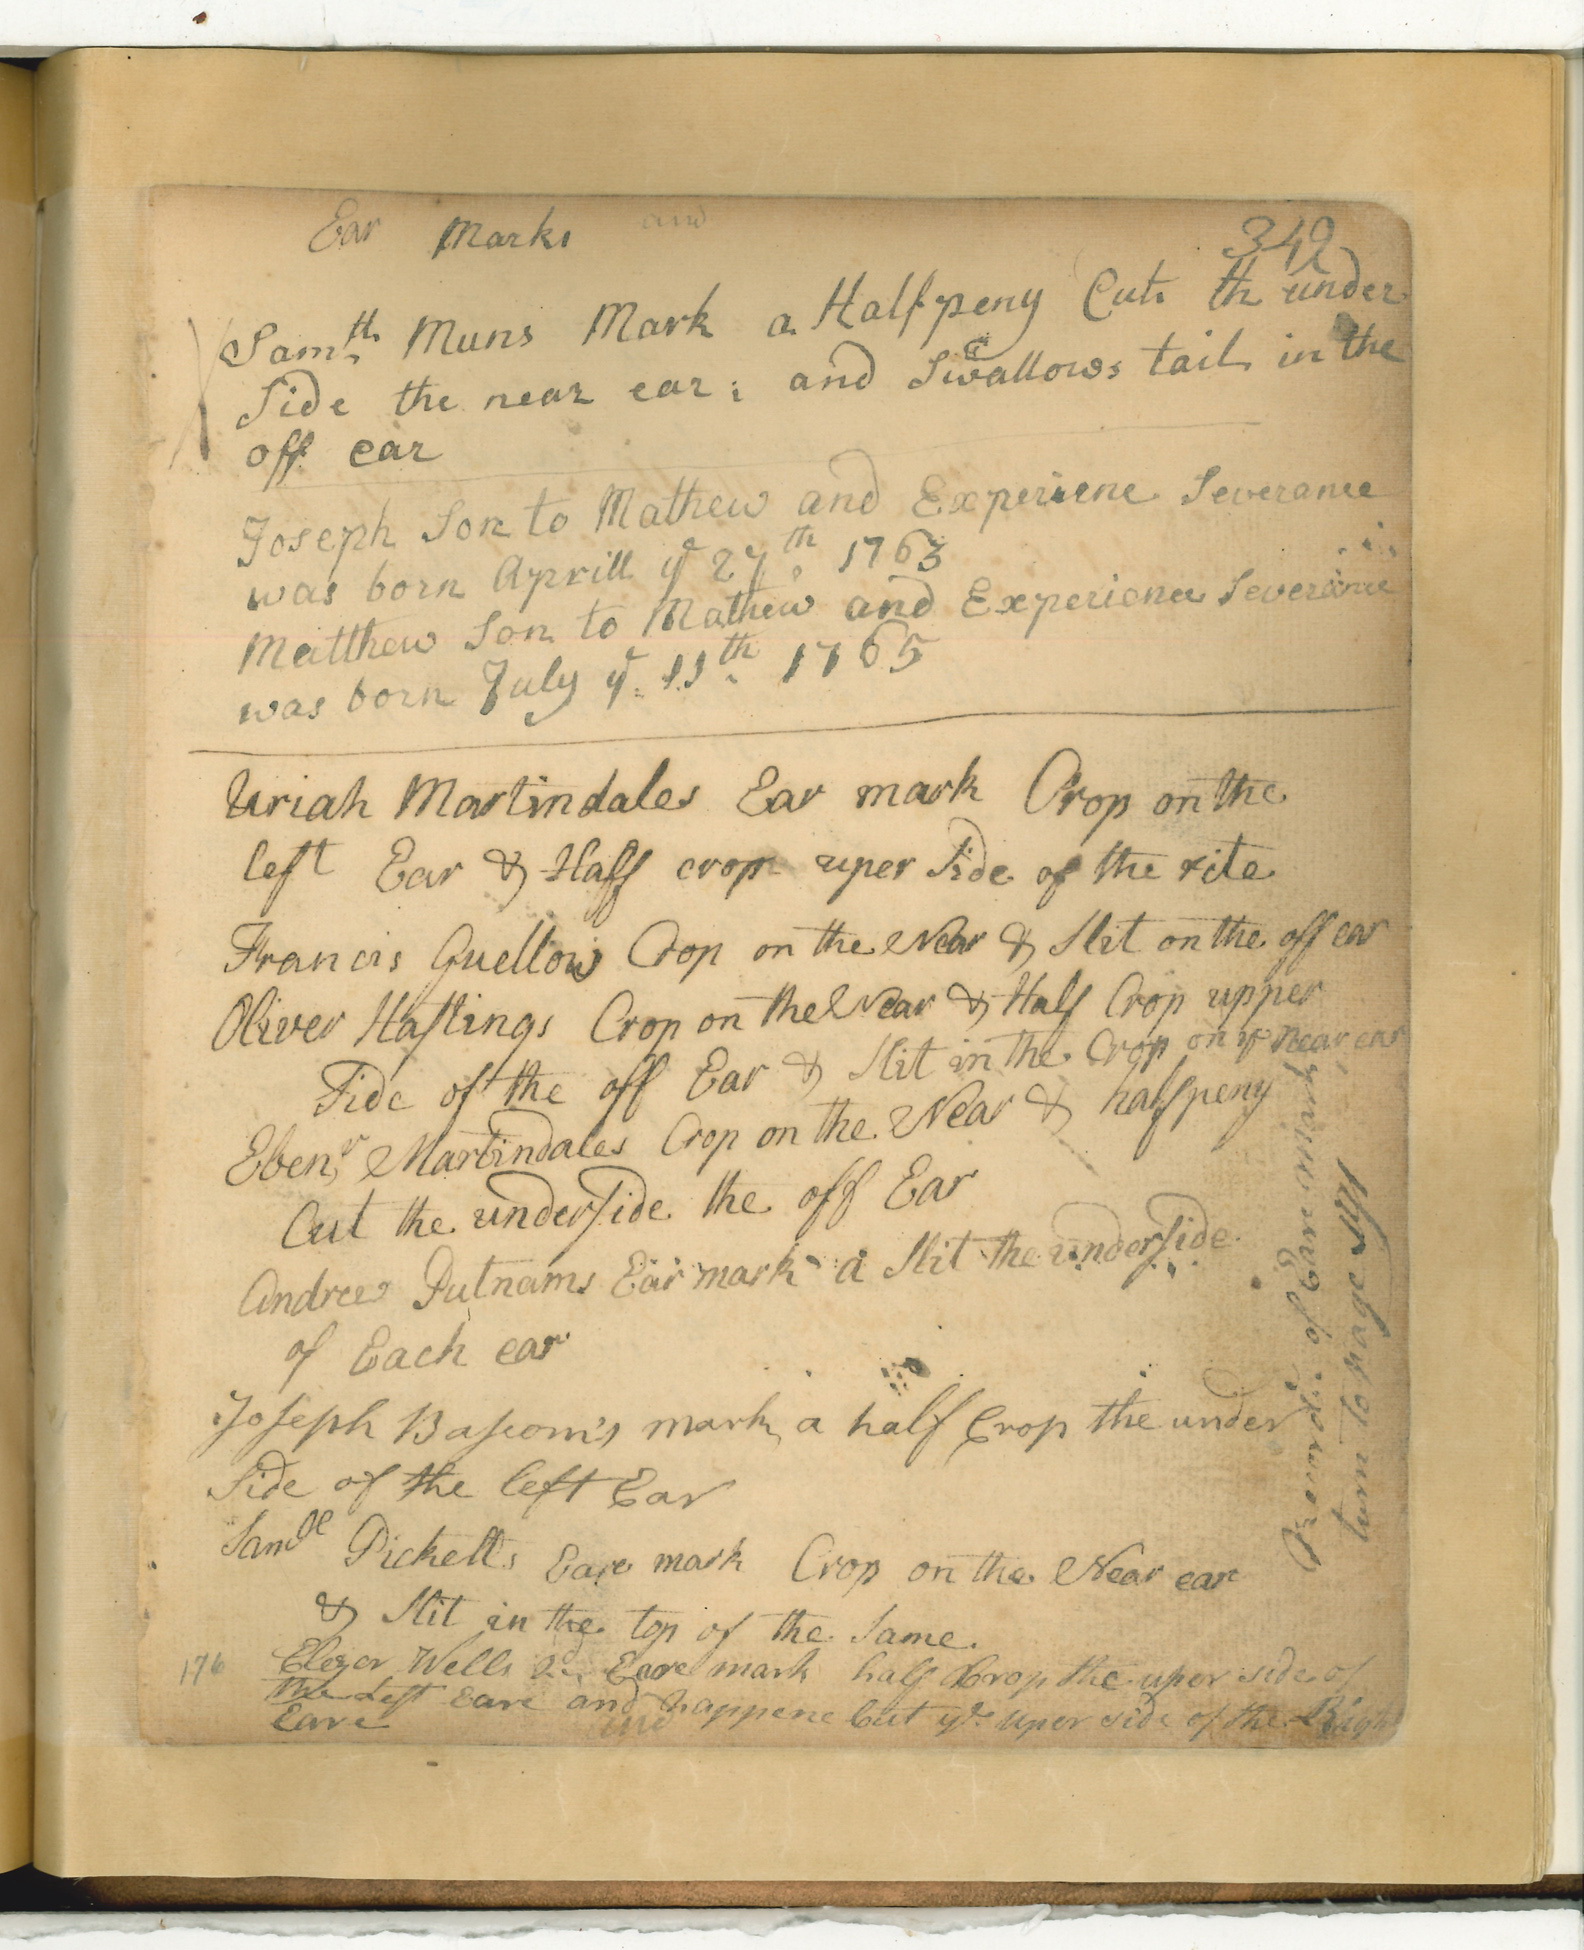 Ear Marks and
342
Samth Muns Mark a Halfpeny Cut th under
Side the near ear: and a Swallows tail in the
off ear
Joseph Son to Mathew and Experiene Severance
was born Aprill ye 27th 1763
Matthew Son to Mathew and Experience Severance
was born July ye 11th 1765
Uriah Martindales Ear mark Crop on the
left Ear & Half crop uper Side of the rite
Francis Crop on the Near & Slit on the off ear
Oliver Hastings Crop on the Near & Half Crop upper
Side of the off Ear & Slit in the Crop on ye near ear
Ebenr Martindales Crop on the Near & halfpeny
Cut the underside the off Ear
Andrew Putnams Ear mark a Slit the underside
of Each ear
Joseph Bascom's mark a half Crop the under
Side of the left Ear
Samll Picketts Eare mark Crop on the Near ear
& Slit in the top of the Same.
176
Elezer Wells Eare mark half Crop the uper side of
the Left Eare and happene Cut ye uper side of the Right
Eare
and
Record of Eare mark
turn to page